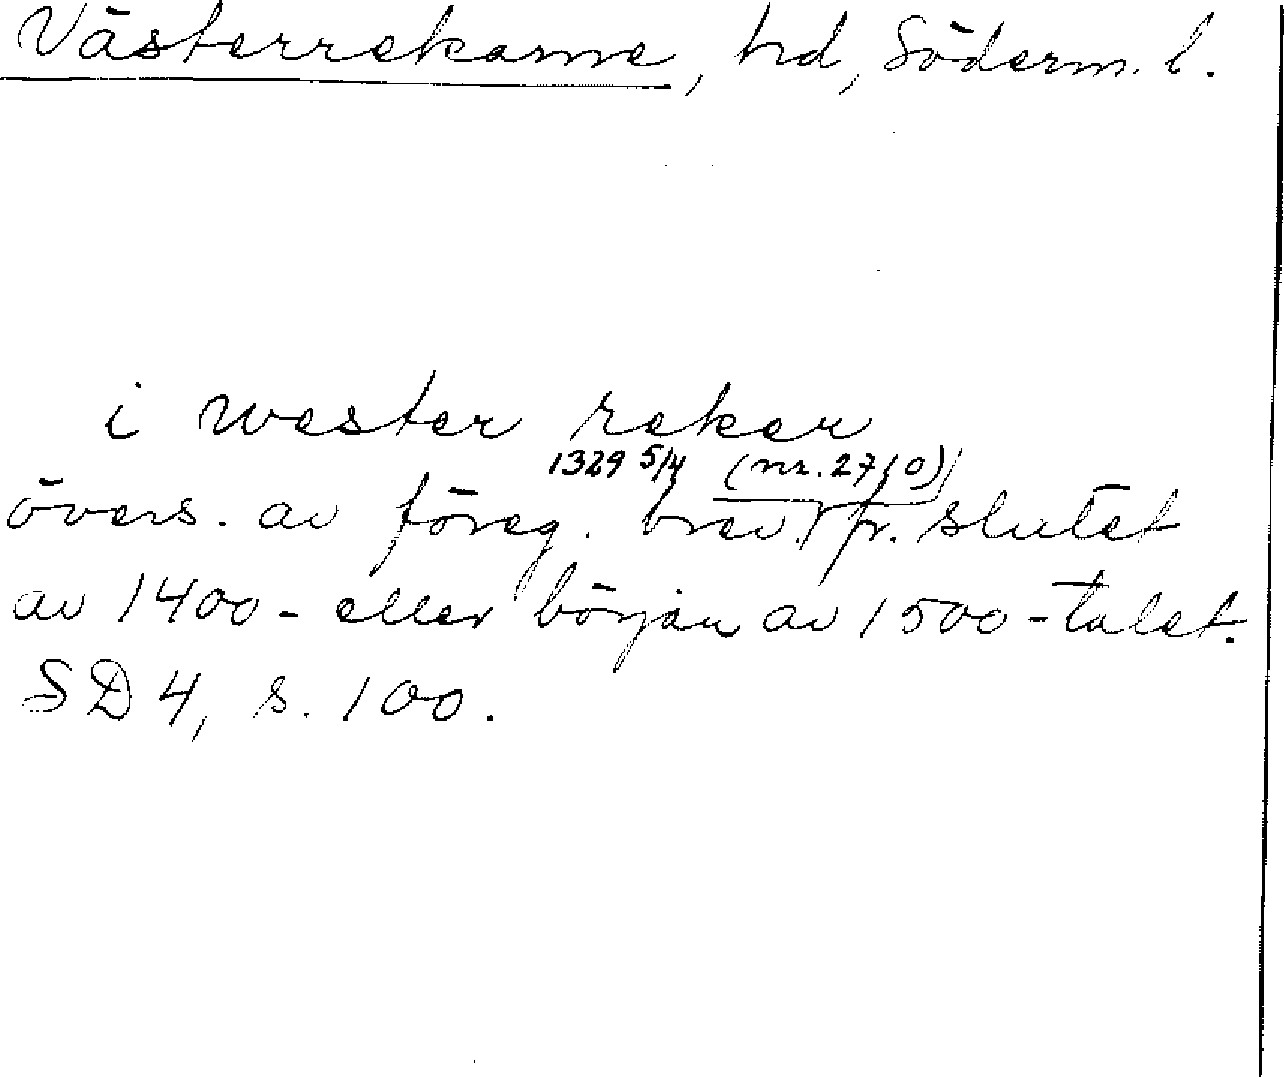 Västerrekarne, hd, Söderm. l.
i wester reker
1329 5/4 (nr. 2710)
övers. av föreg. brev. fr. slutet
av 1400- eller början av 1500-talet.
SD 4, s. 100.